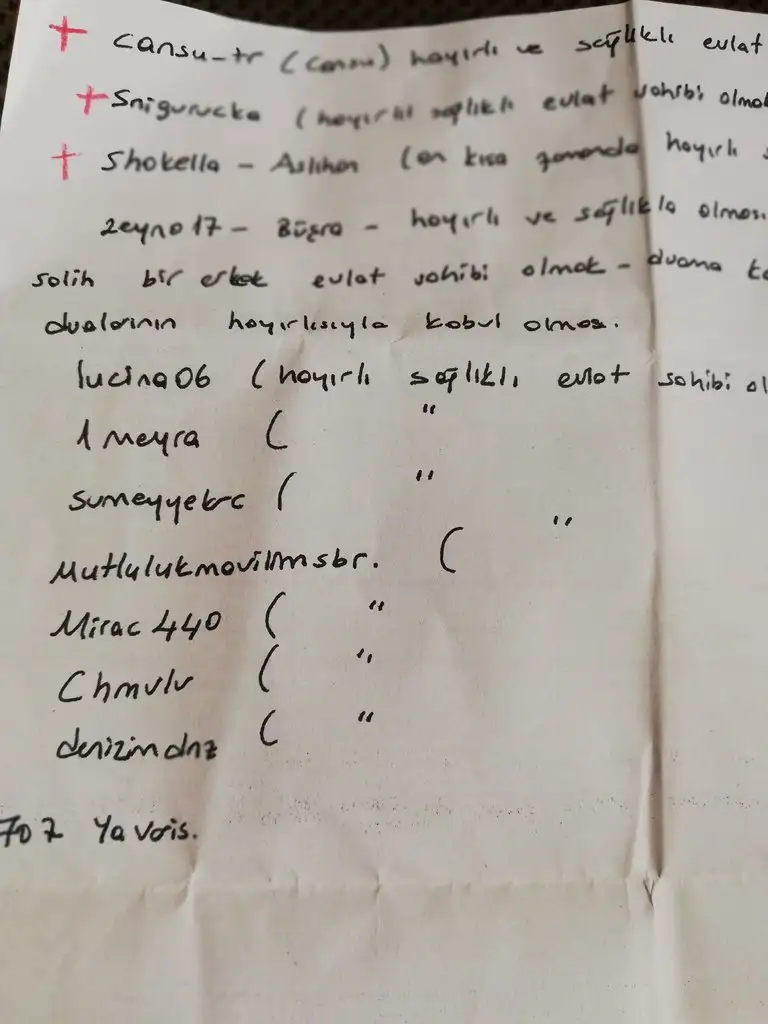 + cansu-tr (Cansu) hayırlı ve sağlıklı evlat
+ Snigurucka (hayırlı sağlıklı evlat sahibi olma
+ Shokella - Aslıhan (en kısa zamanda hayırlı
zeyno17 - Büşra - hayırlı ve sağlıkla olması
salih bir erkek evlat sahibi olmak - duama
dualarının hayırlısıyla kabul olması.
lucina06 (hayırlı sağlıklı evlat sahibi ol
1meyra ( "
sumeyyebrc ( "
Mutlulukmavilimsbr. ( "
Mirac440 ( "
Chmvlv ( "
denizimdnz ( "
707 Ya varis.